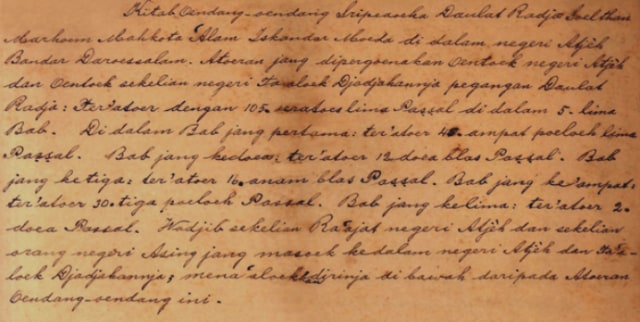 Kitab Oendang-oendang Sripadoeka Daulat Radja Soelthan
Marhoem Mahkota 'Alam Iskandar Moeda di dalam negeri Atjèh
Bandar Daroessalam. Atoeran jang dipergoenakan Oentoek negeri Atjèh
dan Oentoek sekelian negeri Ta'aloek Djadjahannja pegangan Daulat
Radja: Ter'atoer dengan 105. seratoes lima Passal di dalam 5. lima
Bab. Di dalam Bab jang pertama: ter'atoer 45. ampat poeloeh lima
Passal. Bab jang kedoea: ter'atoer 12 doea blas Passal. Bab
jang ketiga: ter'atoer 16. anam blas Passal. Bab jang ke'ampat:
ter'atoer 30. tiga poeloeh Passal. Bab jang kelima: ter'atoer 2.
doea Passal. Wadjib sekelian Ra'ajat negeri Atjèh dan sekelian
orang negeri Asing jang masoek kedalam negeri Atjèh dan Ta'a-
loek Djadjahannja; mena'aloekkan dirinja di bawah daripada Atoeran
Oendang-oendang ini.